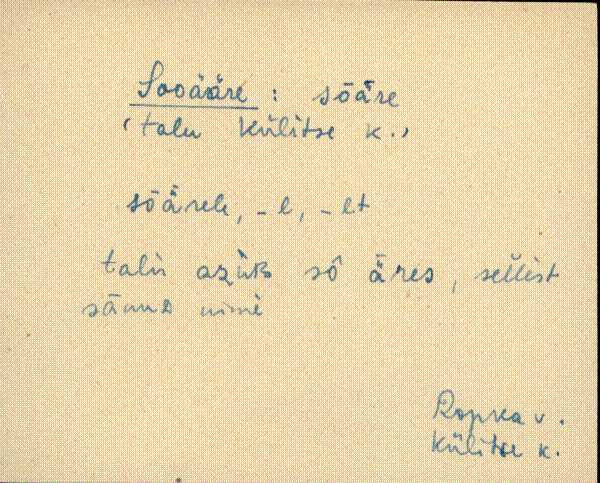 Sooääre : sōäre
(talu Külitse k.)
sōärele, -l, -lt
talu azub sō äres, sellest
sānud nimi
Ropka v.
Külitse k.